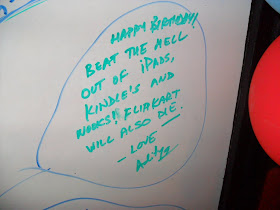 HAPPY BIRTHDAY!
BEAT THE HELL
OUT OF iPADS,
KINDLE'S AND
NOOKS! FLIPKART
WILL ALSO DIE.
- LOVE